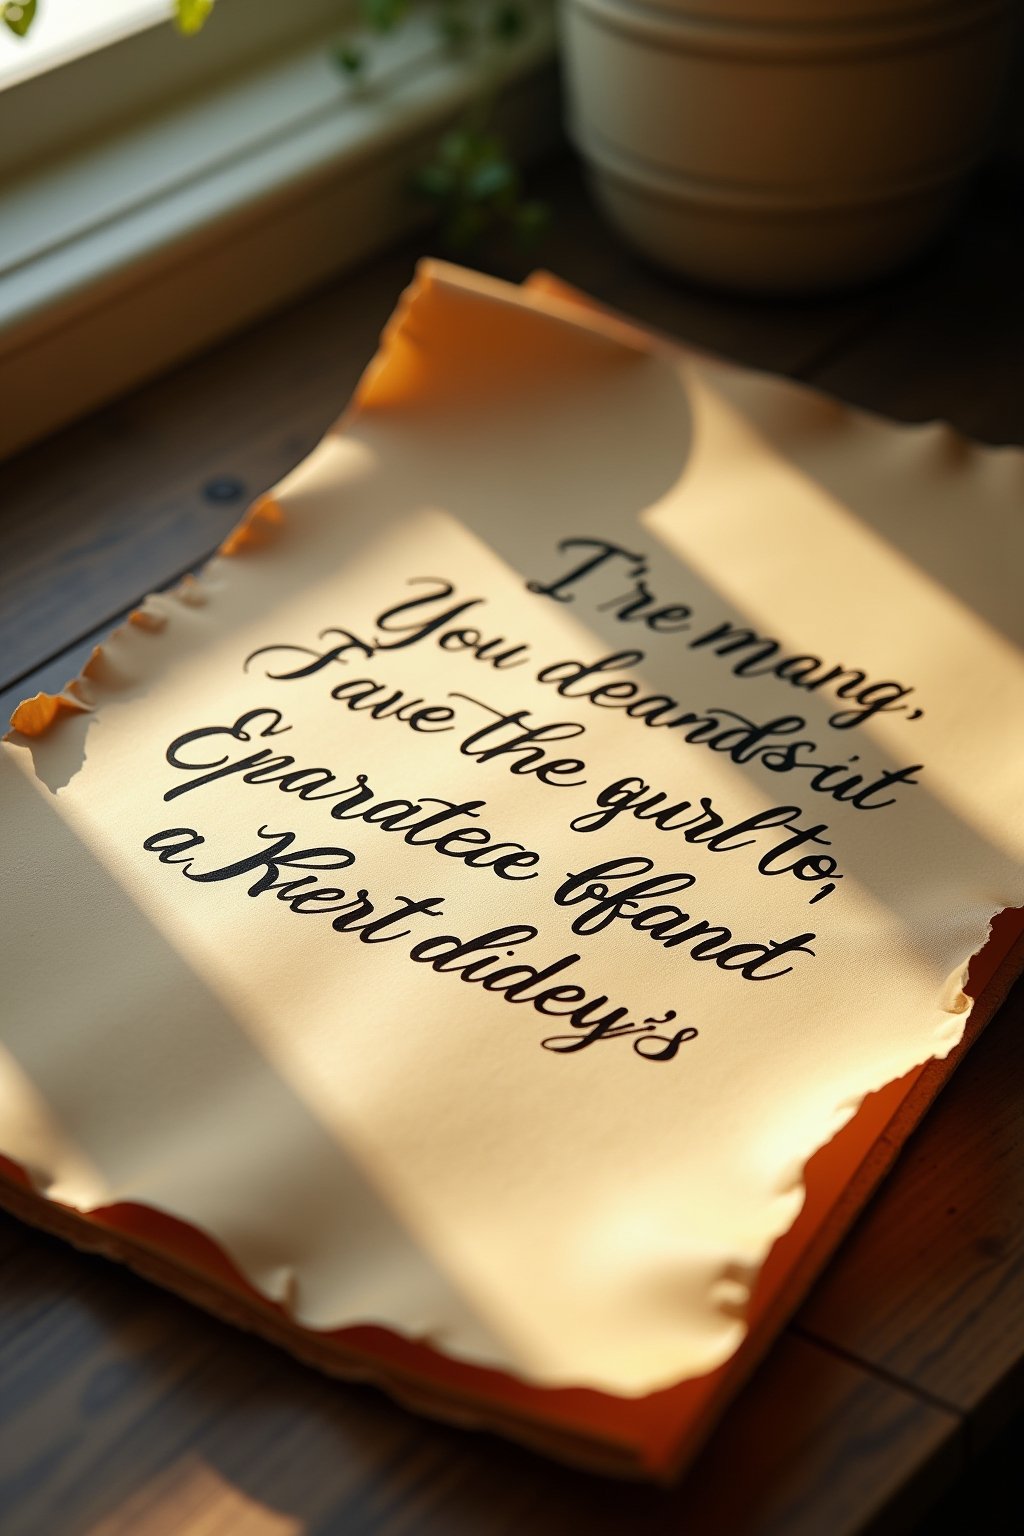 I're mang,
You deandsiit
Fave the gurl to,
Eparatece bfand
a Kiert didey's